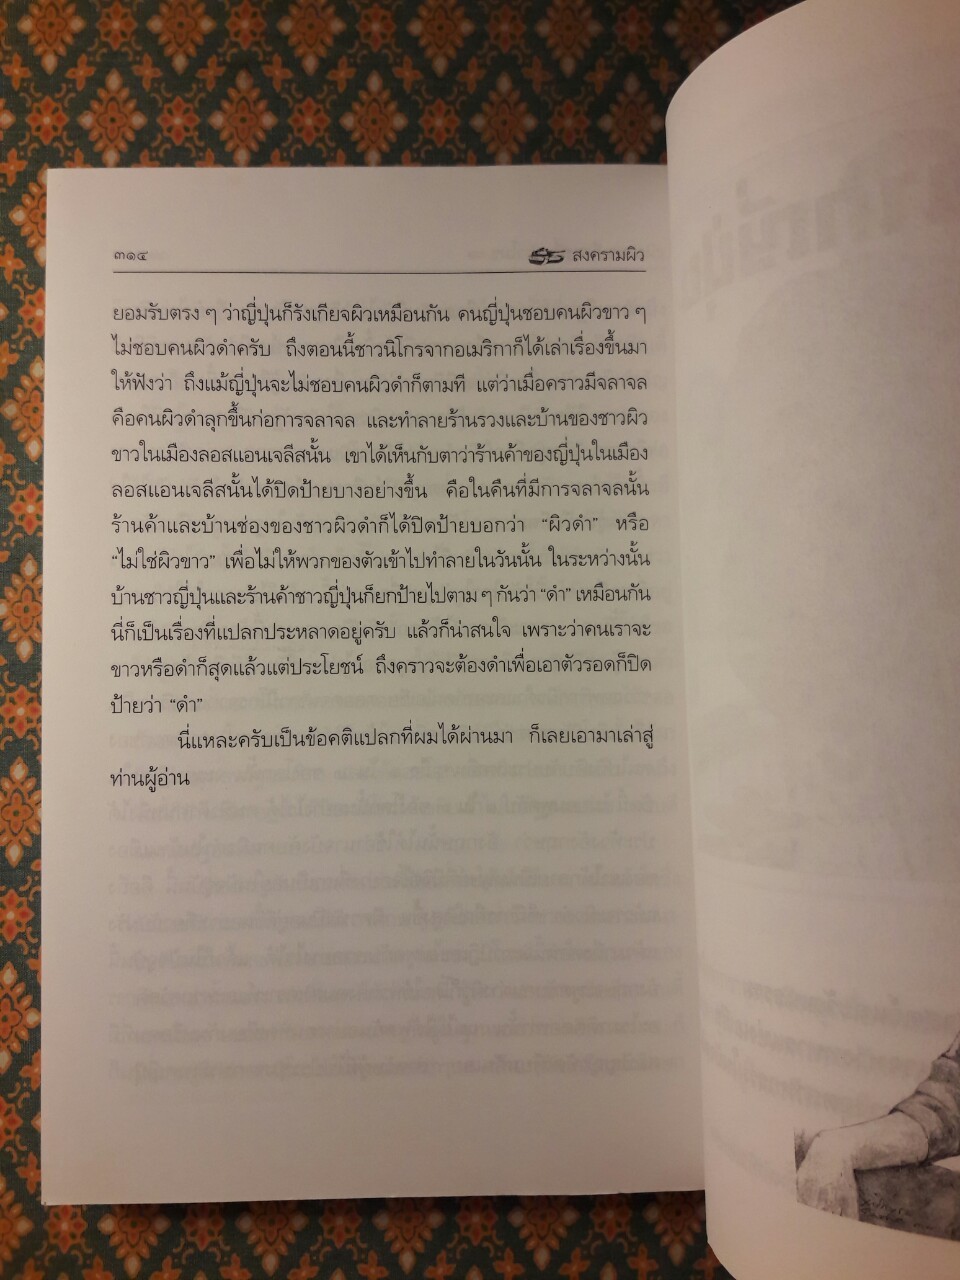 ๓๑๔ สงครามผิว
ยอมรับตรง ๆ ว่าญี่ปุ่นก็รังเกียจผิวเหมือนกัน คนญี่ปุ่นชอบคนผิวขาว ๆ
ไม่ชอบคนผิวดำครับ ถึงตอนนี้ชาวนิโกรจากอเมริกาก็ได้เล่าเรื่องขึ้นมา
ให้ฟังว่า ถึงแม้ญี่ปุ่นจะไม่ชอบคนผิวดำก็ตามที แต่ว่าเมื่อคราวมีจลาจล
คือคนผิวดำลุกขึ้นก่อการจลาจล และทำลายร้านรวงและบ้านของชาวผิว
ขาวในเมืองลอสแอนเจลีสนั้น เขาได้เห็นกับตาว่าร้านค้าของญี่ปุ่นในเมือง
ลอสแอนเจลีสนั้นได้ปิดป้ายบางอย่างขึ้น คือในคืนที่มีการจลาจลนั้น
ร้านค้าและบ้านช่องของชาวผิวดำก็ได้ปิดป้ายบอกว่า “ผิวดำ” หรือ
“ไม่ใช่ผิวขาว” เพื่อไม่ให้พวกของตัวเข้าไปทำลายในวันนั้น ในระหว่างนั้น
บ้านชาวญี่ปุ่นและร้านค้าชาวญี่ปุ่นก็ยกป้ายไปตาม ๆ กันว่า “ดำ” เหมือนกัน
นี่ก็เป็นเรื่องที่แปลกประหลาดอยู่ครับ แล้วก็น่าสนใจ เพราะว่าคนเราจะ
ขาวหรือดำก็สุดแล้วแต่ประโยชน์ ถึงคราวจะต้องดำเพื่อเอาตัวรอดก็ปิด
ป้ายว่า “ดำ”
นี่แหละครับเป็นข้อคติแปลกที่ผมได้ผ่านมา ก็เลยเอามาเล่าสู่
ท่านผู้อ่าน